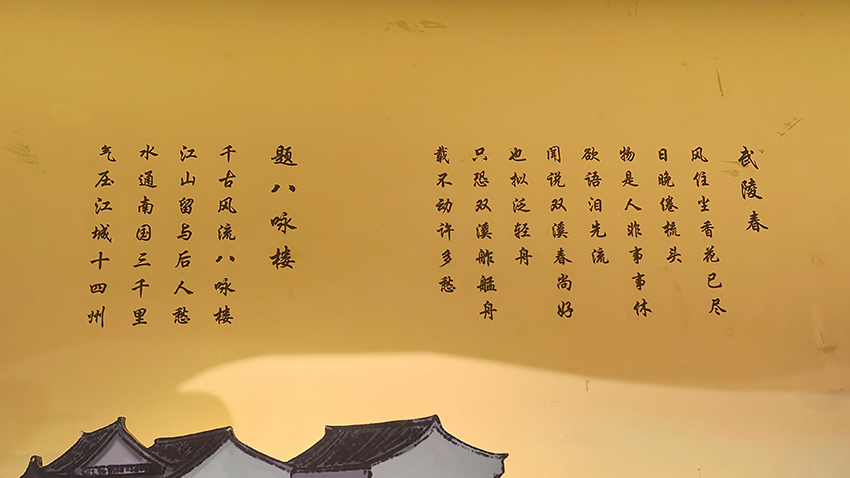 武陵春
风住尘香花已尽
日晚倦梳头
物是人非事事休
欲语泪先流
闻说双溪春尚好
也拟泛轻舟
只恐双溪舴艋舟
载不动许多愁
题八咏楼
千古风流八咏楼
江山留与后人愁
水通南国三千里
气压江城十四州